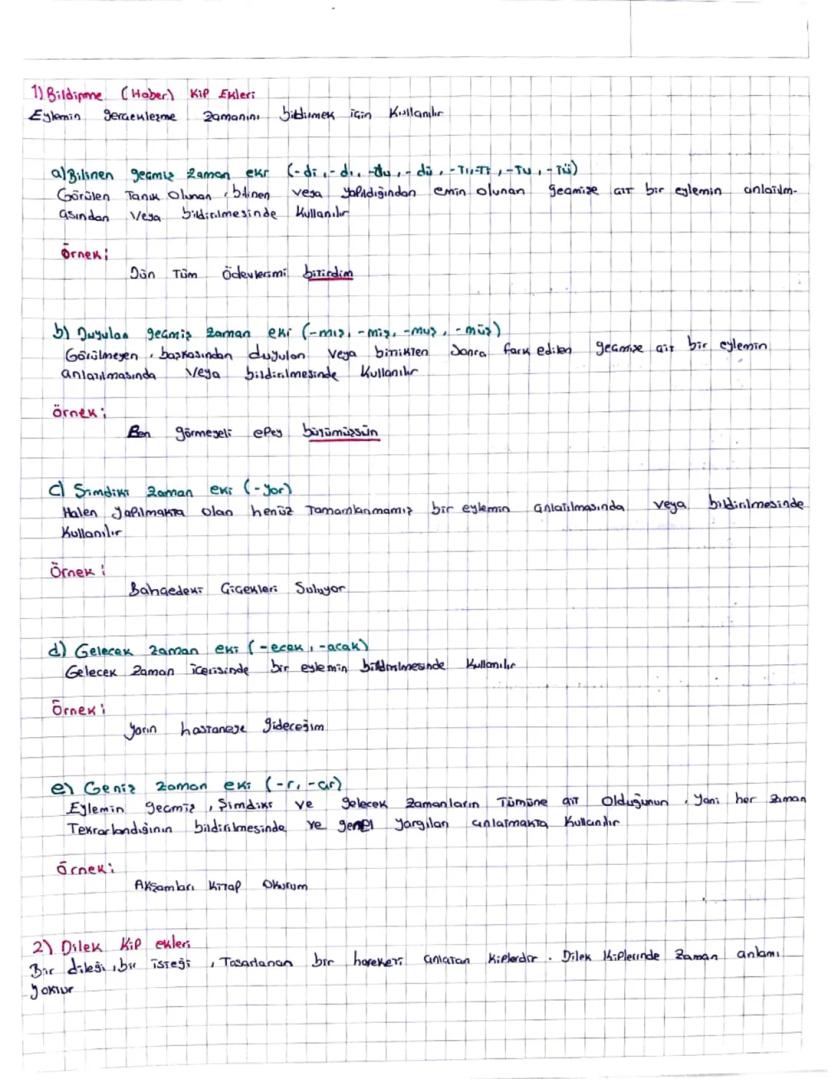 1) Bildirme (Haber) Kip Ekleri
Eylemin gerçekleşme zamanını bildirmek için Kullanılır
a) Bilinen geçmiş zaman eki (-di, -dı, -du, -dü, -Tı, -Ti, -Tu, -Tü)
Görülen Tanık Olunan, bilinen veya yapıldığından emin olunan geçmişe ait bir eylemin anlatılm-
asından Veya bildirilmesinde Kullanılır
Örnek:
Dün Tüm Ödevlerimi bitirdim
b) Duyulan geçmiş zaman eki (-mış, -miş, -muş, -müş)
Görülmeyen, başkasından duyulan veya bittikten Sonra fark edilen geçmişe ait bir eylemin
anlatılmasında Veya bildirilmesinde Kullanılır
Örnek:
Ben görmeyeli epey büyümüşsün
c) Şimdiki zaman eki (-yor)
Halen yapılmakta olan henüz Tamamlanmamış bir eylemin anlatılmasında veya bildirilmesinde
Kullanılır
Örnek:
Bahçedeki Çiçekleri Suluyor
d) Gelecek zaman eki (-ecek, -acak)
Gelecek zaman içerisinde bir eylemin bildirilmesinde Kullanılır
Örnek:
Yarın hastaneye gideceğim
e) Geniş zaman eki (-r, -ar)
Eylemin geçmiş, Şimdiki ve gelecek zamanların Tümüne ait Olduğunun, Yani her zaman
Tekrarlandığının bildirilmesinde ve genel yargıları anlatmakta Kullanılır
Örnek:
Akşamları Kitap Okurum
2) Dilek Kip ekleri
Bir dileği, bir isteği, Tasarlanan bir hareketi anlatan Kiplerdir. Dilek Kiplerinde Zaman anlamı
yoktur